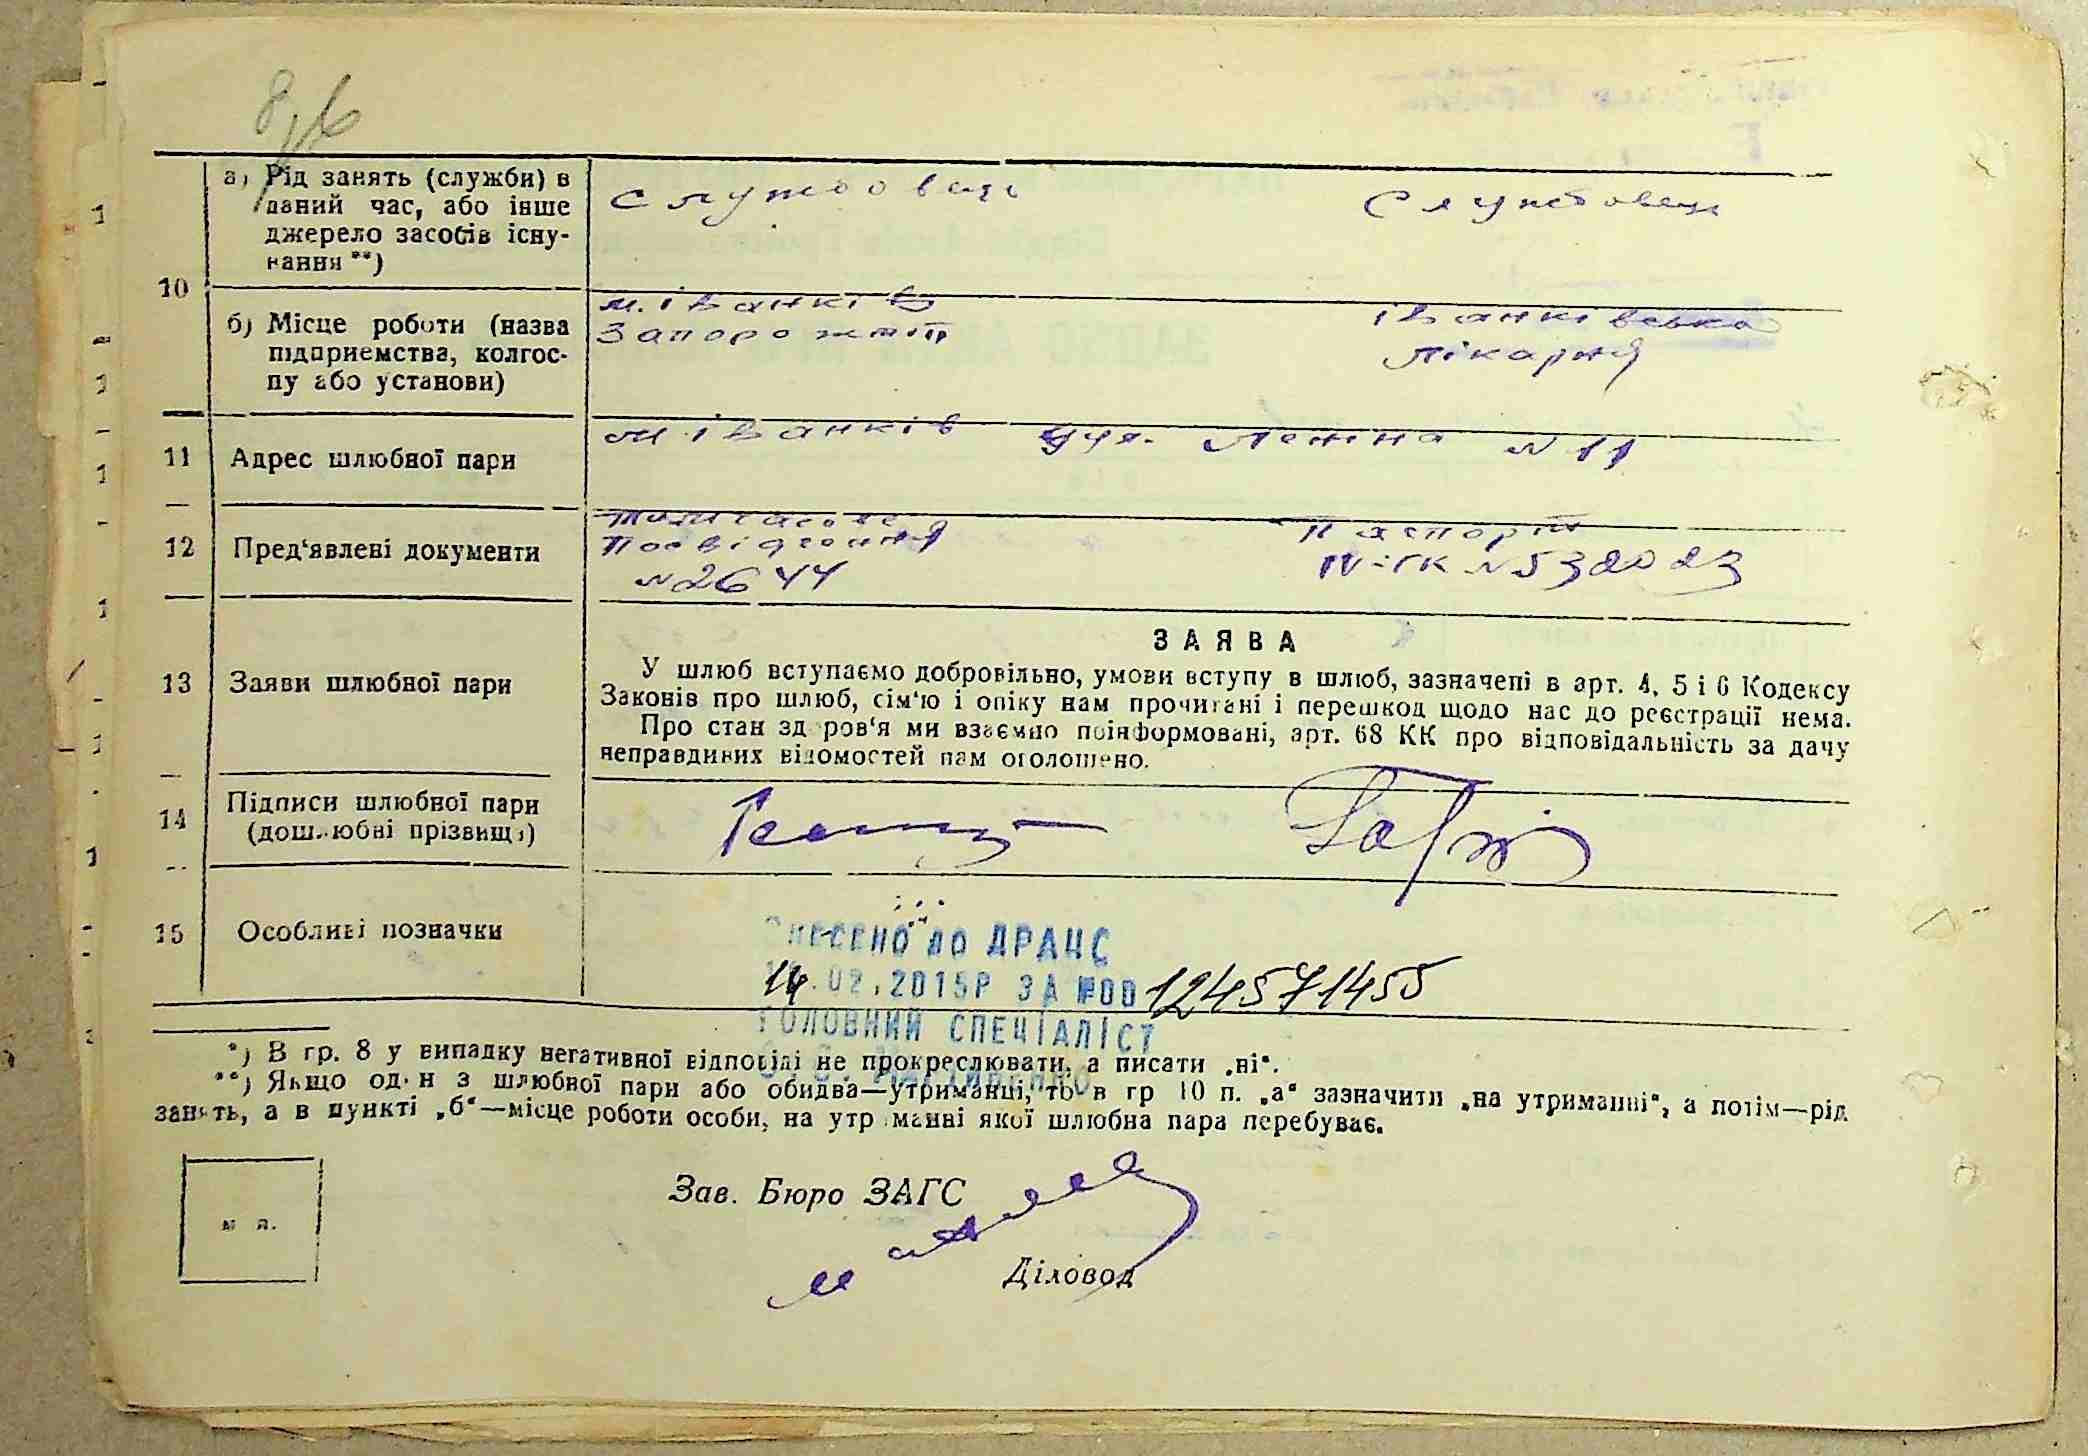 а) Рід занять (служби) в
даний час, або інше
джерело засобів існу-
вання **)
службовець
Службовець
10
б) Місце роботи (назва
підприємства, колгос-
пу або установи)
м. іванків
іванківська
лікарня
11
Адрес шлюбної пари
м. іванків вул. Леніна № 11
12
Пред'явлені документи
Посвідчення
№2644
Паспорт
IV-ГК №532023
13
Заяви шлюбної пари
ЗАЯВА
У шлюб вступаємо добровільно, умови вступу в шлюб, зазначені в арт. 4, 5 і 6 Кодексу
Законів про шлюб, сім'ю і опіку нам прочитані і перешкод щодо нас до реєстрації нема.
Про стан здоров'я ми взаємно поінформовані, арт. 68 КК про відповідальність за дачу
неправдивих відомостей нам оголошено.
14
Підписи шлюбної пари
(дошлюбні прізвища)
15
Особливі позначки
ВНЕСЕНО ДО ДРАЦС
14.02.2015Р ЗА №00 124571455
ГОЛОВНИЙ СПЕЦІАЛІСТ
*) В гр. 8 у випадку негативної відповіді не прокреслювати, а писати „ні“.
**) Якщо один з шлюбної пари або обидва—утриманці, то в гр 10 п. „а“ зазначити „на утриманні“, а потім—рід
занять, а в пункті „б“—місце роботи особи, на утриманні якої шлюбна пара перебуває.
м п.
Зав. Бюро ЗАГС
Діловод